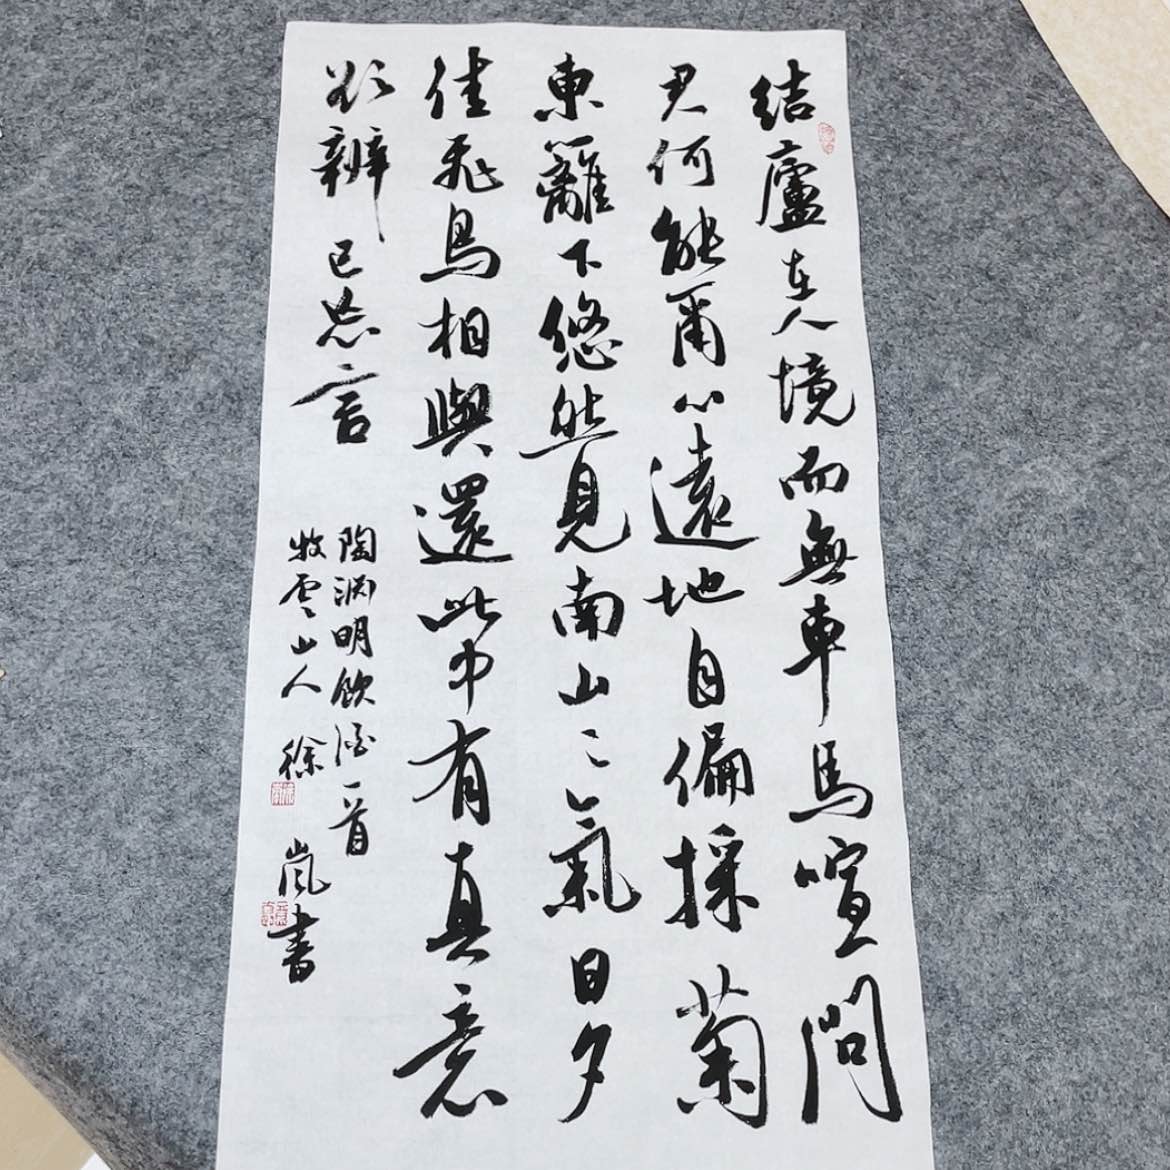 結廬在人境而無車馬喧問
君何能爾心遠地自偏採菊
東籬下悠然見南山山氣日夕
佳飛鳥相與還此中有真意
欲辨已忘言
陶淵明飲酒一首
牧雲山人徐嵐書